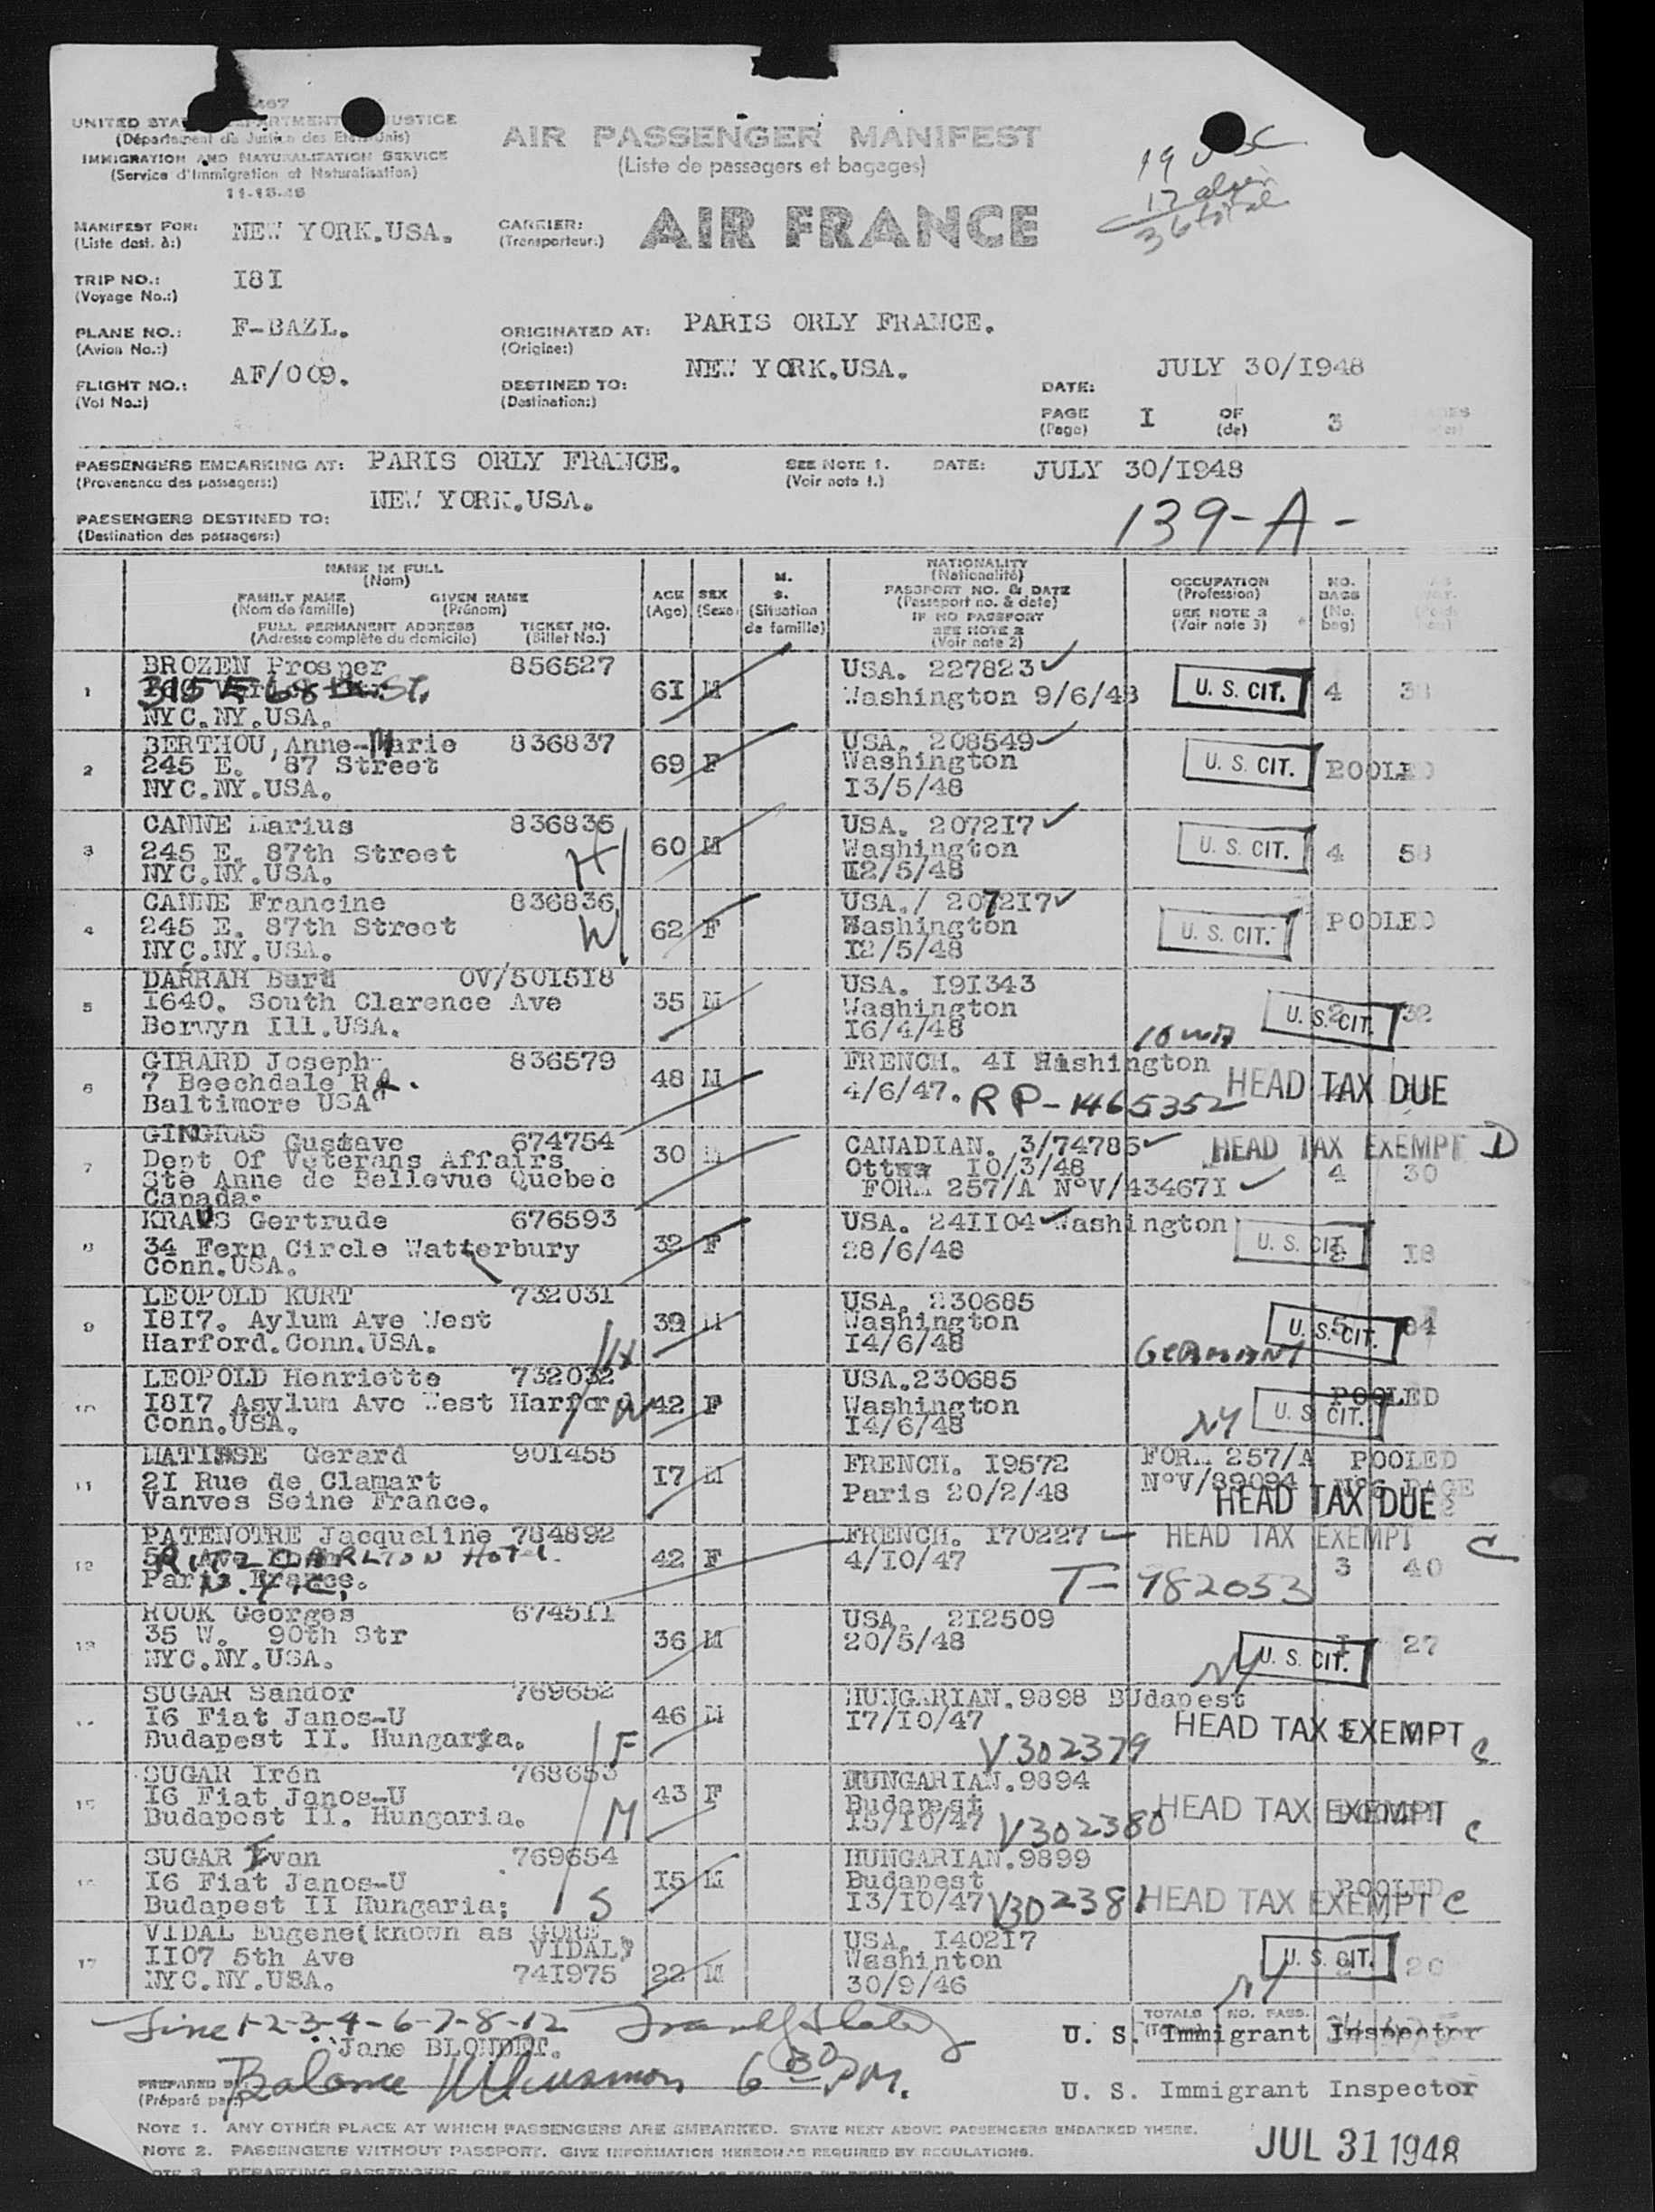 467
UNITED STA PARTMENT USTICE
(Département du Justice des Etats-Unis)
IMMIGRATION AND NATURALIZATION SERVICE
(Service d'Immigration et Naturalisation)
11-15-46
AIR PASSENGER MANIFEST
(Liste de passagers et bagages)
19 USC
17 alien
36 total
MANIFEST FOR: NEW YORK.USA.
(Liste dest. à:)
CARRIER: AIR FRANCE
(Transporteur:)
TRIP NO.: I8I
(Voyage No.:)
PLANE NO.: F-BAZL.
(Avion No.:)
ORIGINATED AT: PARIS ORLY FRANCE.
(Origine:)
FLIGHT NO.: AF/009.
(Vol No.:)
DESTINED TO: NEW YORK.USA.
(Destination:)
DATE: JULY 30/I948
PAGE I OF 3
(Page) (de)
PASSENGERS EMBARKING AT: PARIS ORLY FRANCE.
(Provenance des passagers:)
SEE NOTE 1. DATE: JULY 30/I948
(Voir note 1.)
PASSENGERS DESTINED TO: NEW YORK.USA.
(Destination des passagers:)
139-A-
NAME IN FULL
(Nom)
FAMILY NAME GIVEN NAME
(Nom de famille) (Prénom)
FULL PERMANENT ADDRESS TICKET NO.
(Adresse complète du domicile) (Billet No.)
AGE
(Age)
SEX
(Sexe)
M.
S.
(Situation
de famille)
NATIONALITY
(Nationalité)
PASSPORT NO. & DATE
(Passeport no. & date)
IF NO PASSPORT
SEE NOTE 2
(Voir note 2)
OCCUPATION
(Profession)
SEE NOTE 3
(Voir note 3)
NO.
BAGS
(No.
bag)
1 BROZEN Prosper 856527 6I M USA. 227823 U. S. CIT. 4 38
315 E 68 St. Washington 9/6/48
NYC.NY.USA.
2 BERTHOU,Anne-Marie 836837 69 F USA. 208549 U. S. CIT. POOLED
245 E. 87 Street Washington
NYC.NY.USA. I3/5/48
3 CANNE Marius 836835 60 M USA. 2072I7 U. S. CIT. 4 58
245 E. 87th Street H Washington
NYC.NY.USA. I2/5/48
4 CANNE Francine 836836 62 F USA./ 2072I7 U. S. CIT. POOLED
245 E. 87th Street W Washington
NYC.NY.USA. I2/5/48
5 DARRAH Burd OV/50I5I8 35 M USA. I9I343 U. S. CIT. 2 32
I640. South Clarence Ave Washington
Berwyn Ill.USA. I6/4/48
10 WA
6 GIRARD Joseph 836579 48 M FRENCH. 4I Washington HEAD TAX DUE
7 Beechdale Rd. 4/6/47. RP-1465352
Baltimore USA
7 GINGRAS Gustave 674754 30 M CANADIAN. 3/74785 HEAD TAX EXEMPT D
Dept Of Veterans Affairs Ottwa I0/3/48 4 30
Ste Anne de Bellevue Quebec FORM 257/A N°V/43467I
Canada.
8 KRAUS Gertrude 676593 32 F USA. 24II04 Washington U. S. CIT. I8
34 Fern Circle Watterbury 28/6/48
Conn.USA.
9 LEOPOLD KURT 73203I 39 M USA. 230685 U. S. CIT. 5
I8I7. Aylum Ave West Washington
Harford.Conn.USA. H I4/6/48 GERMANY
10 LEOPOLD Henriette 732032 42 F USA.230685 U. S. CIT. POOLED
I8I7 Asylum Ave West Harford W Washington
Conn.USA. I4/6/48 NY
11 MATISSE Gerard 90I455 I7 M FRENCH. I9572 FORM 257/A POOLED
2I Rue de Clamart Paris 20/2/48 N°V/89094 N°6 PAGE
Vanves Seine France. HEAD TAX DUE
12 PATENOTRE Jacqueline 784892 42 F FRENCH. I70227 HEAD TAX EXEMPT C
RITZ CARLTON Hotel 4/I0/47 3 40
Paris.France. N.Y.C. T-982053
13 ROUK Georges 6745II 36 M USA. 2I2509 U. S. CIT. I 27
35 W. 90th Str 20/5/48
NYC.NY.USA. NY
SUGAR Sandor 769652 46 M HUNGARIAN.9898 BUdapest
I6 Fiat Janos-U I7/I0/47 HEAD TAX EXEMPT C
Budapest II. Hungaria. F V302379
15 SUGAR Irén 768653 43 F HUNGARIAN.9894
I6 Fiat Janos-U Budapest HEAD TAX EXEMPT C
Budapest II. Hungaria. M I5/I0/47 V302380
SUGAR Ivan 769654 I5 M HUNGARIAN.9899
I6 Fiat Janos-U Budapest POOLED
Budapest II Hungaria; S I3/I0/47 V302381 HEAD TAX EXEMPT C
17 VIDAL Eugene(known as GORE VIDAL) USA. I402I7 U. S. CIT. 20
II07 5th Ave Washinton
NYC.NY.USA. 74I975 22 M 30/9/46 NY
Line 1-2-3-4-6-7-8-12
Jane BLONDET.
TOTALS NO. PASS.
U. S. Immigrant Inspector
PREPARED BY: Balance 6 30 P.M.
(Préparé par:)
U. S. Immigrant Inspector
NOTE 1. ANY OTHER PLACE AT WHICH PASSENGERS ARE EMBARKED. STATE NEXT ABOVE PASSENGERS EMBARKED THERE.
NOTE 2. PASSENGERS WITHOUT PASSPORT. GIVE INFORMATION HEREON AS REQUIRED BY REGULATIONS.
JUL 31 1948